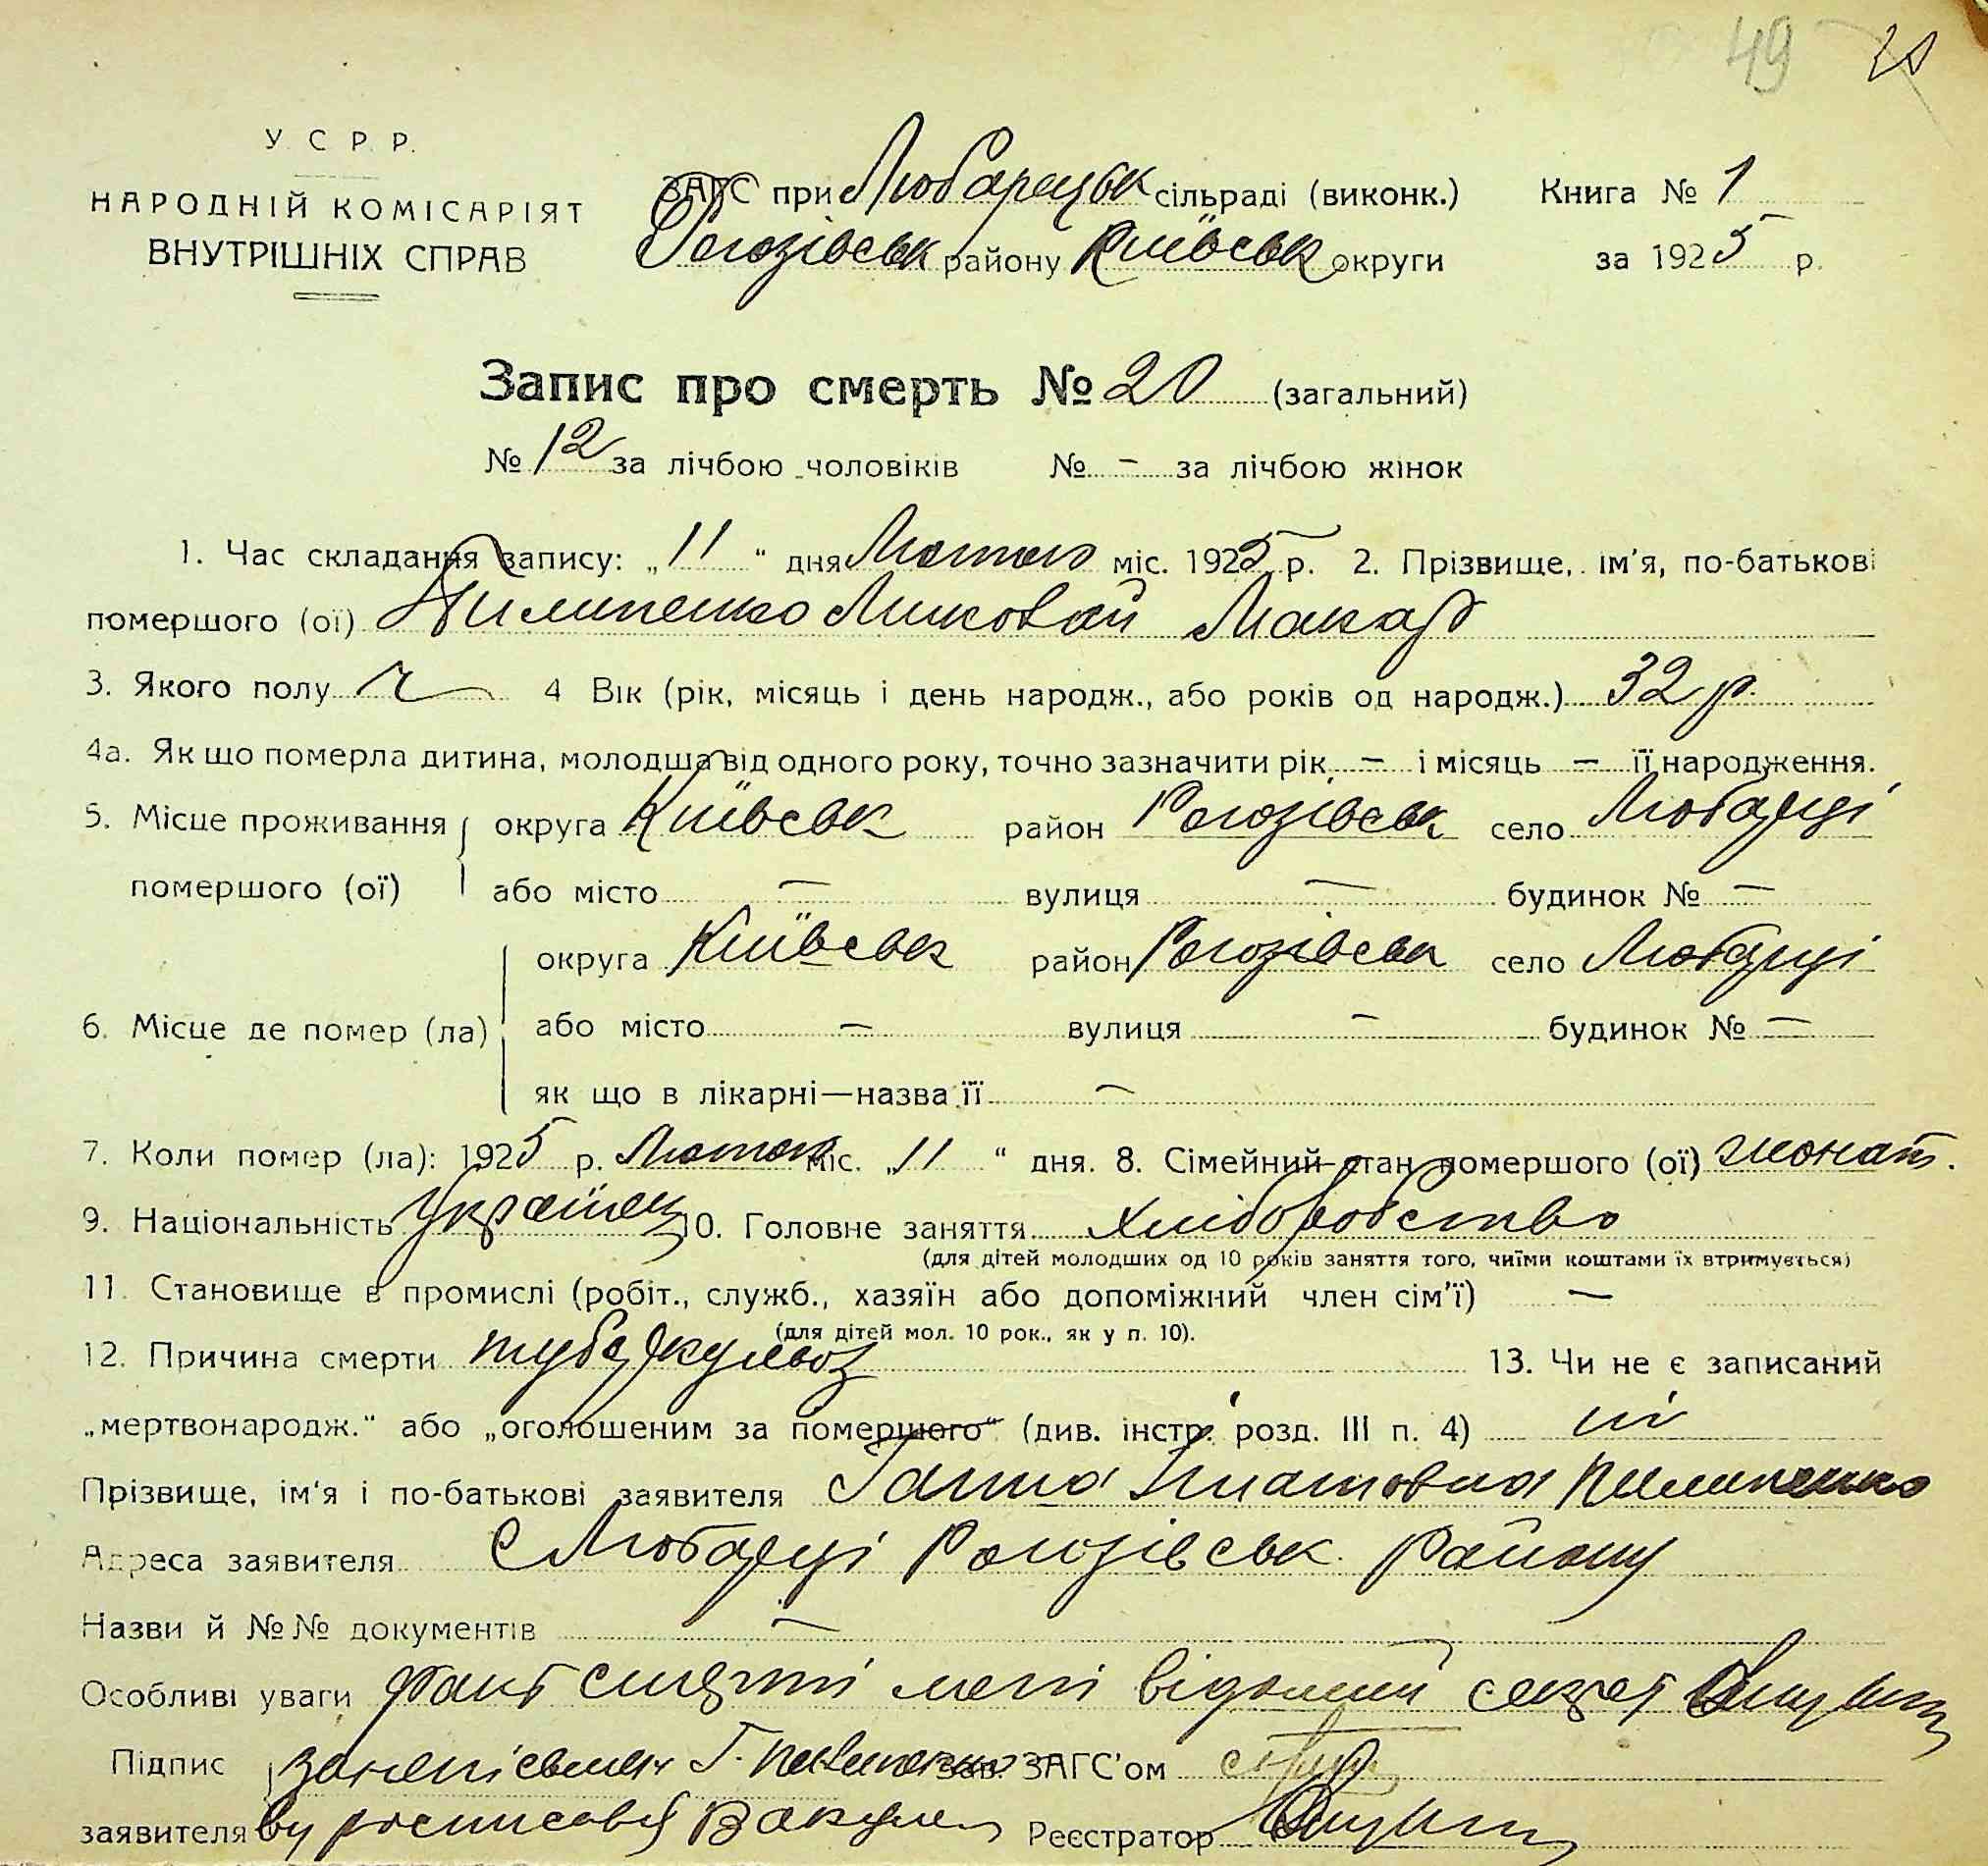 49 20
У С Р Р.
НАРОДНІЙ КОМІСАРІЯТ
ВНУТРІШНІХ СПРАВ
ЗАГС при Любарецьк сільраді (виконк.) Книга № 1
Рогозівськ району Київськ округи за 1925 р.
Запис про смерть № 20 (загальний)
№ 12 за лічбою чоловіків № – за лічбою жінок
1. Час складання запису: „11“ дня Лютого міс. 1925 р. 2. Прізвище, ім'я, по-батькові
помершого (ої) Пилипенко Миколай Макар
3. Якого полу ч 4 Вік (рік, місяць і день народж., або років од народж.) 32 р.
4а. Як що померла дитина, молодша від одного року, точно зазначити рік – і місяць – її народження.
5. Місце проживання округа Київськ район Рогозівськ село Любарці
помершого (ої) або місто – вулиця – будинок № –
округа Київськ район Рогозівськ село Любарці
6. Місце де помер (ла) або місто – вулиця – будинок № –
як що в лікарні—назва її –
7. Коли помер (ла): 1925 р. Лютого міс. „11“ дня. 8. Сімейний стан помершого (ої) жонат.
9. Національність Українец 10. Головне заняття Хліборобство
(для дітей молодших од 10 років заняття того, чиїми коштами їх втримується)
11. Становище в промислі (робіт., служб., хазяїн або допоміжний член сім'ї) –
(для дітей мол. 10 рок., як у п. 10).
12. Причина смерти туберкульоз 13. Чи не є записаний
„мертвонародж.“ або „оголошеним за помершого“ (див. інстр. розд. III п. 4) ні
Прізвище, ім'я і по-батькові заявителя Ганна Гнатовна Пилипенко
Адреса заявителя с Любарці Рогозівськ. району
Назви й №№ документів –
Особливі уваги факт смерті мені відомий секрет
Підпис за неписьмен Г. Пилипенко Зав. ЗАГС'ом
заявителя Реєстратор